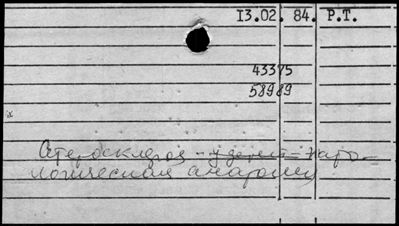 13.02. 84. P.T.
43375
58989
Атеросклероз - у детей - пато-
логическая анатомия